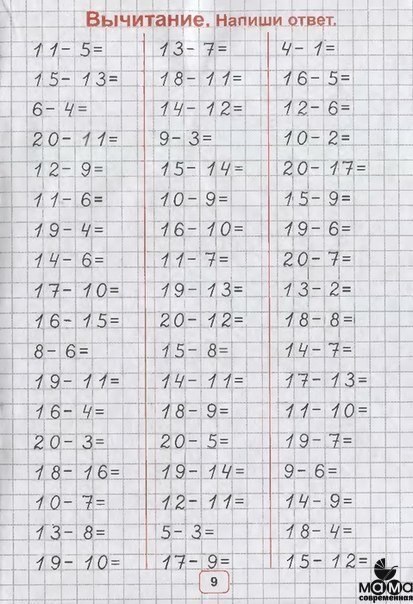 Вычитание. Напиши ответ.
11-5= 13-7= 4-1=
15-13= 18-11= 16-5=
6-4= 14-12= 12-6=
20-11= 9-3= 10-2=
12-9= 15-14= 20-17=
11-6= 10-9= 15-9=
19-4= 16-10= 19-6=
14-6= 11-7= 20-7=
17-10= 19-13= 13-2=
16-15= 20-12= 18-8=
8-6= 15-8= 14-7=
19-11= 14-11= 17-13=
16-4= 18-9= 11-10=
20-3= 20-5= 19-7=
18-16= 19-14= 9-6=
10-7= 12-11= 14-9=
13-8= 5-3= 18-4=
19-10= 17-9= 15-12=
9
мама
современная